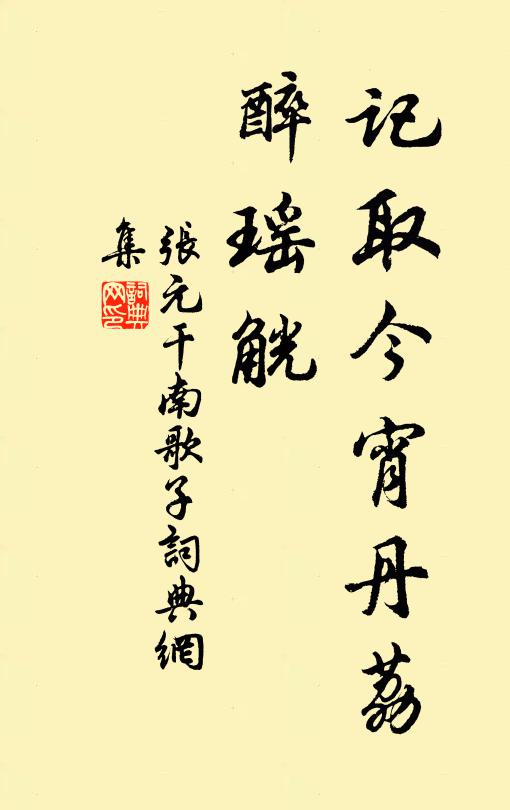 记取今宵丹荔
醉瑶觥
張元干南歌子詞典網
集
詞典
网印